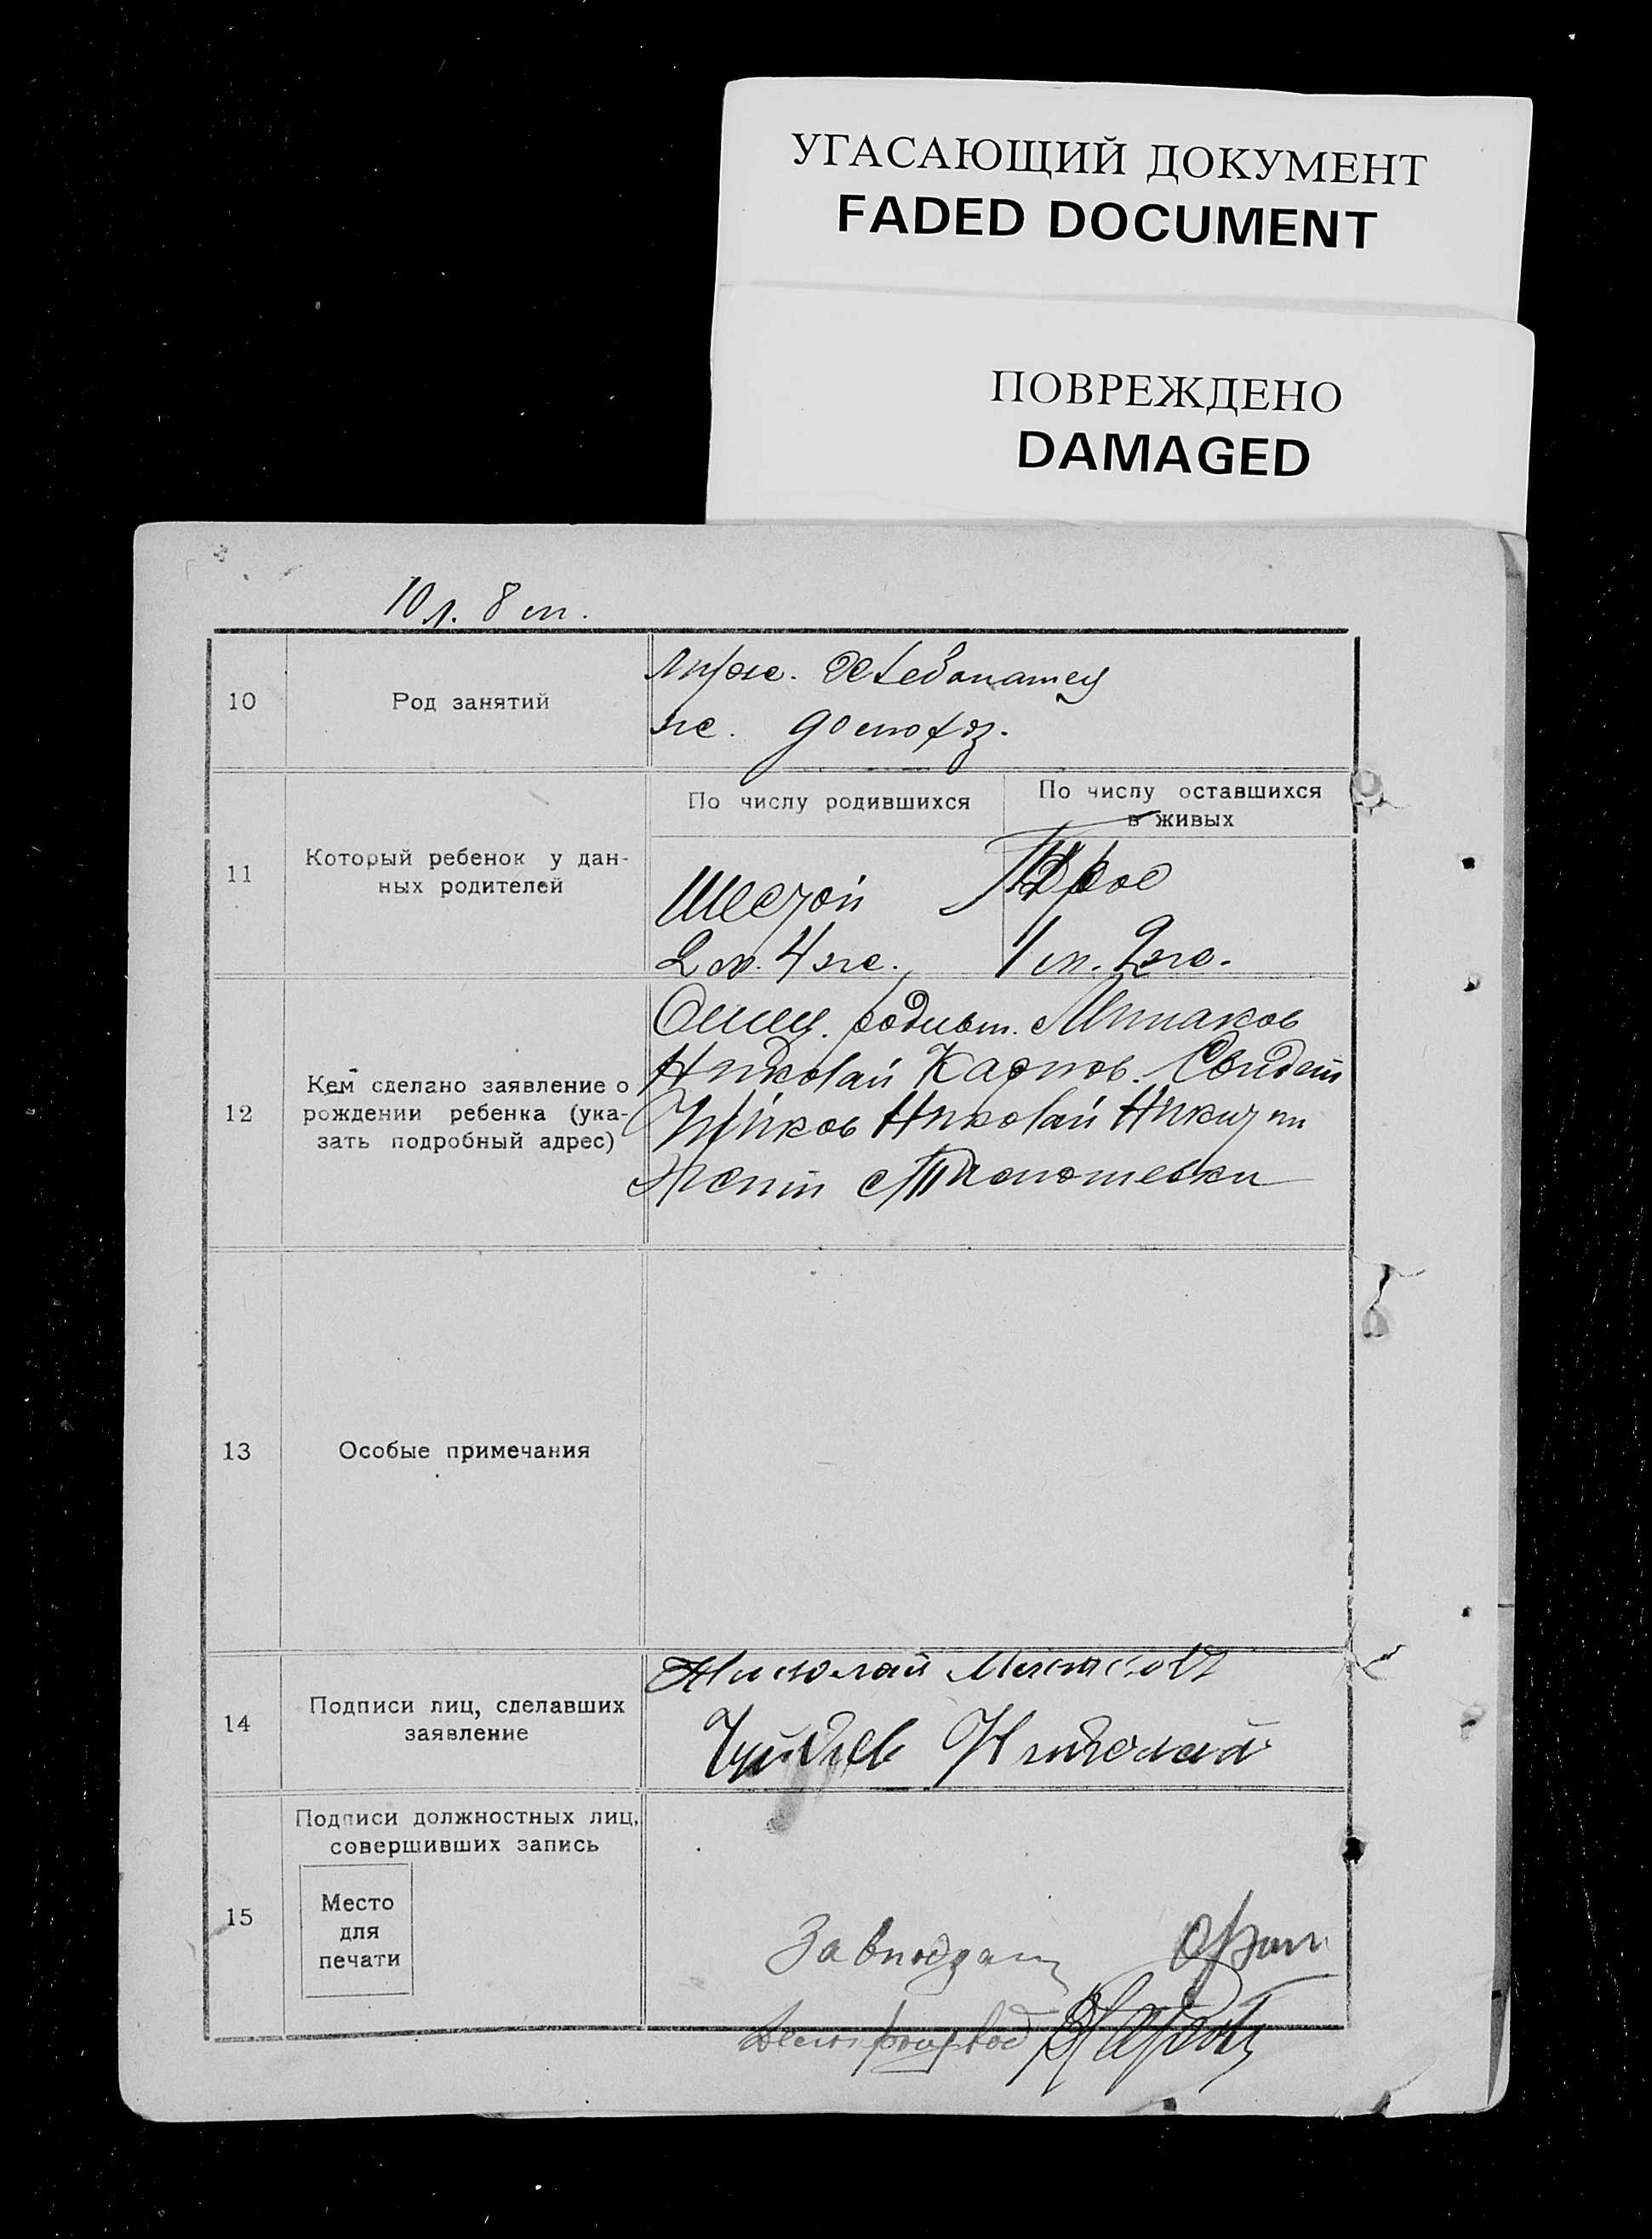 УГАСАЮЩИЙ ДОКУМЕНТ
FADED DOCUMENT
ПОВРЕЖДЕНО
DAMAGED
10 л. 8 м.
10
Род занятий
муж. Хлебопашец
ж. домохоз.
11
Который ребенок у дан-
ных родителей
По числу родившихся
По числу оставшихся
в живых
Шестой
Трое
2 м. 4 ж.
1 м. 2 ж.
12
Кем сделано заявление о
рождении ребенка (ука-
зать подробный адрес)
Отец. родит. Минаков
Николай Карпов. Свидет
Николай Никит
13
Особые примечания
14
Подписи лиц, сделавших
заявление
Николай Минаков
Николай
15
Подписи должностных лиц,
совершивших запись
Место
для
печати
Зав
Делопроизвод